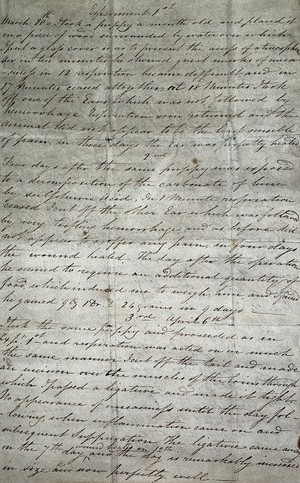 Experiment 1st
March 20th Took a puppy a month old and placed it
on a piece of wood surrounded by water over which
I put a glass cover was to prevent the access of atmospheric
air in ten minutes he showed great marks of uneasi-
-ness in 12 respiration became difficult and in
17 Minutes ceased altogether at 18 Minutes I took
off one of the Ears which was not followed by
hemorrhage Respiration soon returned and the
animal did not appear to be the least sensible
of pain, in three days the ear was perfectly healed
2nd
Four days after the same puppy was exposed
to a decomposition of the carbonate of lime
by sulphuric Acid. In 1 Minute respiration
ceased I cut off the other Ear which was followed
by very trifling hemorrhage and as before did
not appear to suffer any pain, in four days
the wound healed. The day after the operation
he seemed to require an additional quantity of
food which induced me to weigh him and I found
he gained 9 24 grains in 9 days
3rd April 6th
Took the same puppy and proceeded as in
Expt 1st and respiration was acted on in much
the same manner. I cut off the tail and made
an incision over the muscles of the loins through
which I passed a ligature and made it tight
No appearance of uneasiness until the day fol
lowing when inflammation came and
subsequent suppuration The ligature came away
on the 7th wound healed on 12th
day and the dog is remarkably increased
in size and now perfectly well